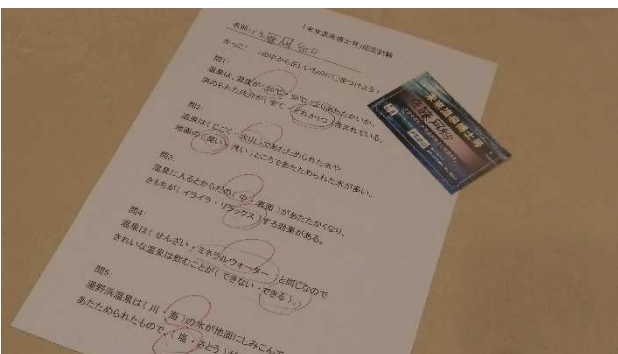 「未来温泉博士号」認定試験
名前：
かっこ（　）の中から正しいものに○をつけよう！
問1：
温泉は、温度が（25℃・35℃）よりあたたかいか、
決められた成分が（全て・どれか1つ）含まれている。
問2：
温泉は（じこく・火山）であたためられた水や
地面の（深い・浅い）ところであたためられた水が多い。
問3：
温泉に入るとからだの（中・表面）があたたかくなり、
きもちが（イライラ・リラックス）する効果がある。
問4：
温泉は（せんざい・ミネラルウォーター）と同じなので
きれいな温泉は飲むことが（できない・できる）。
問5：
湯野浜温泉は（川・海）の水が地面にしみこんで
あたためられたもので、（塩・さとう）が
未来温泉博士号